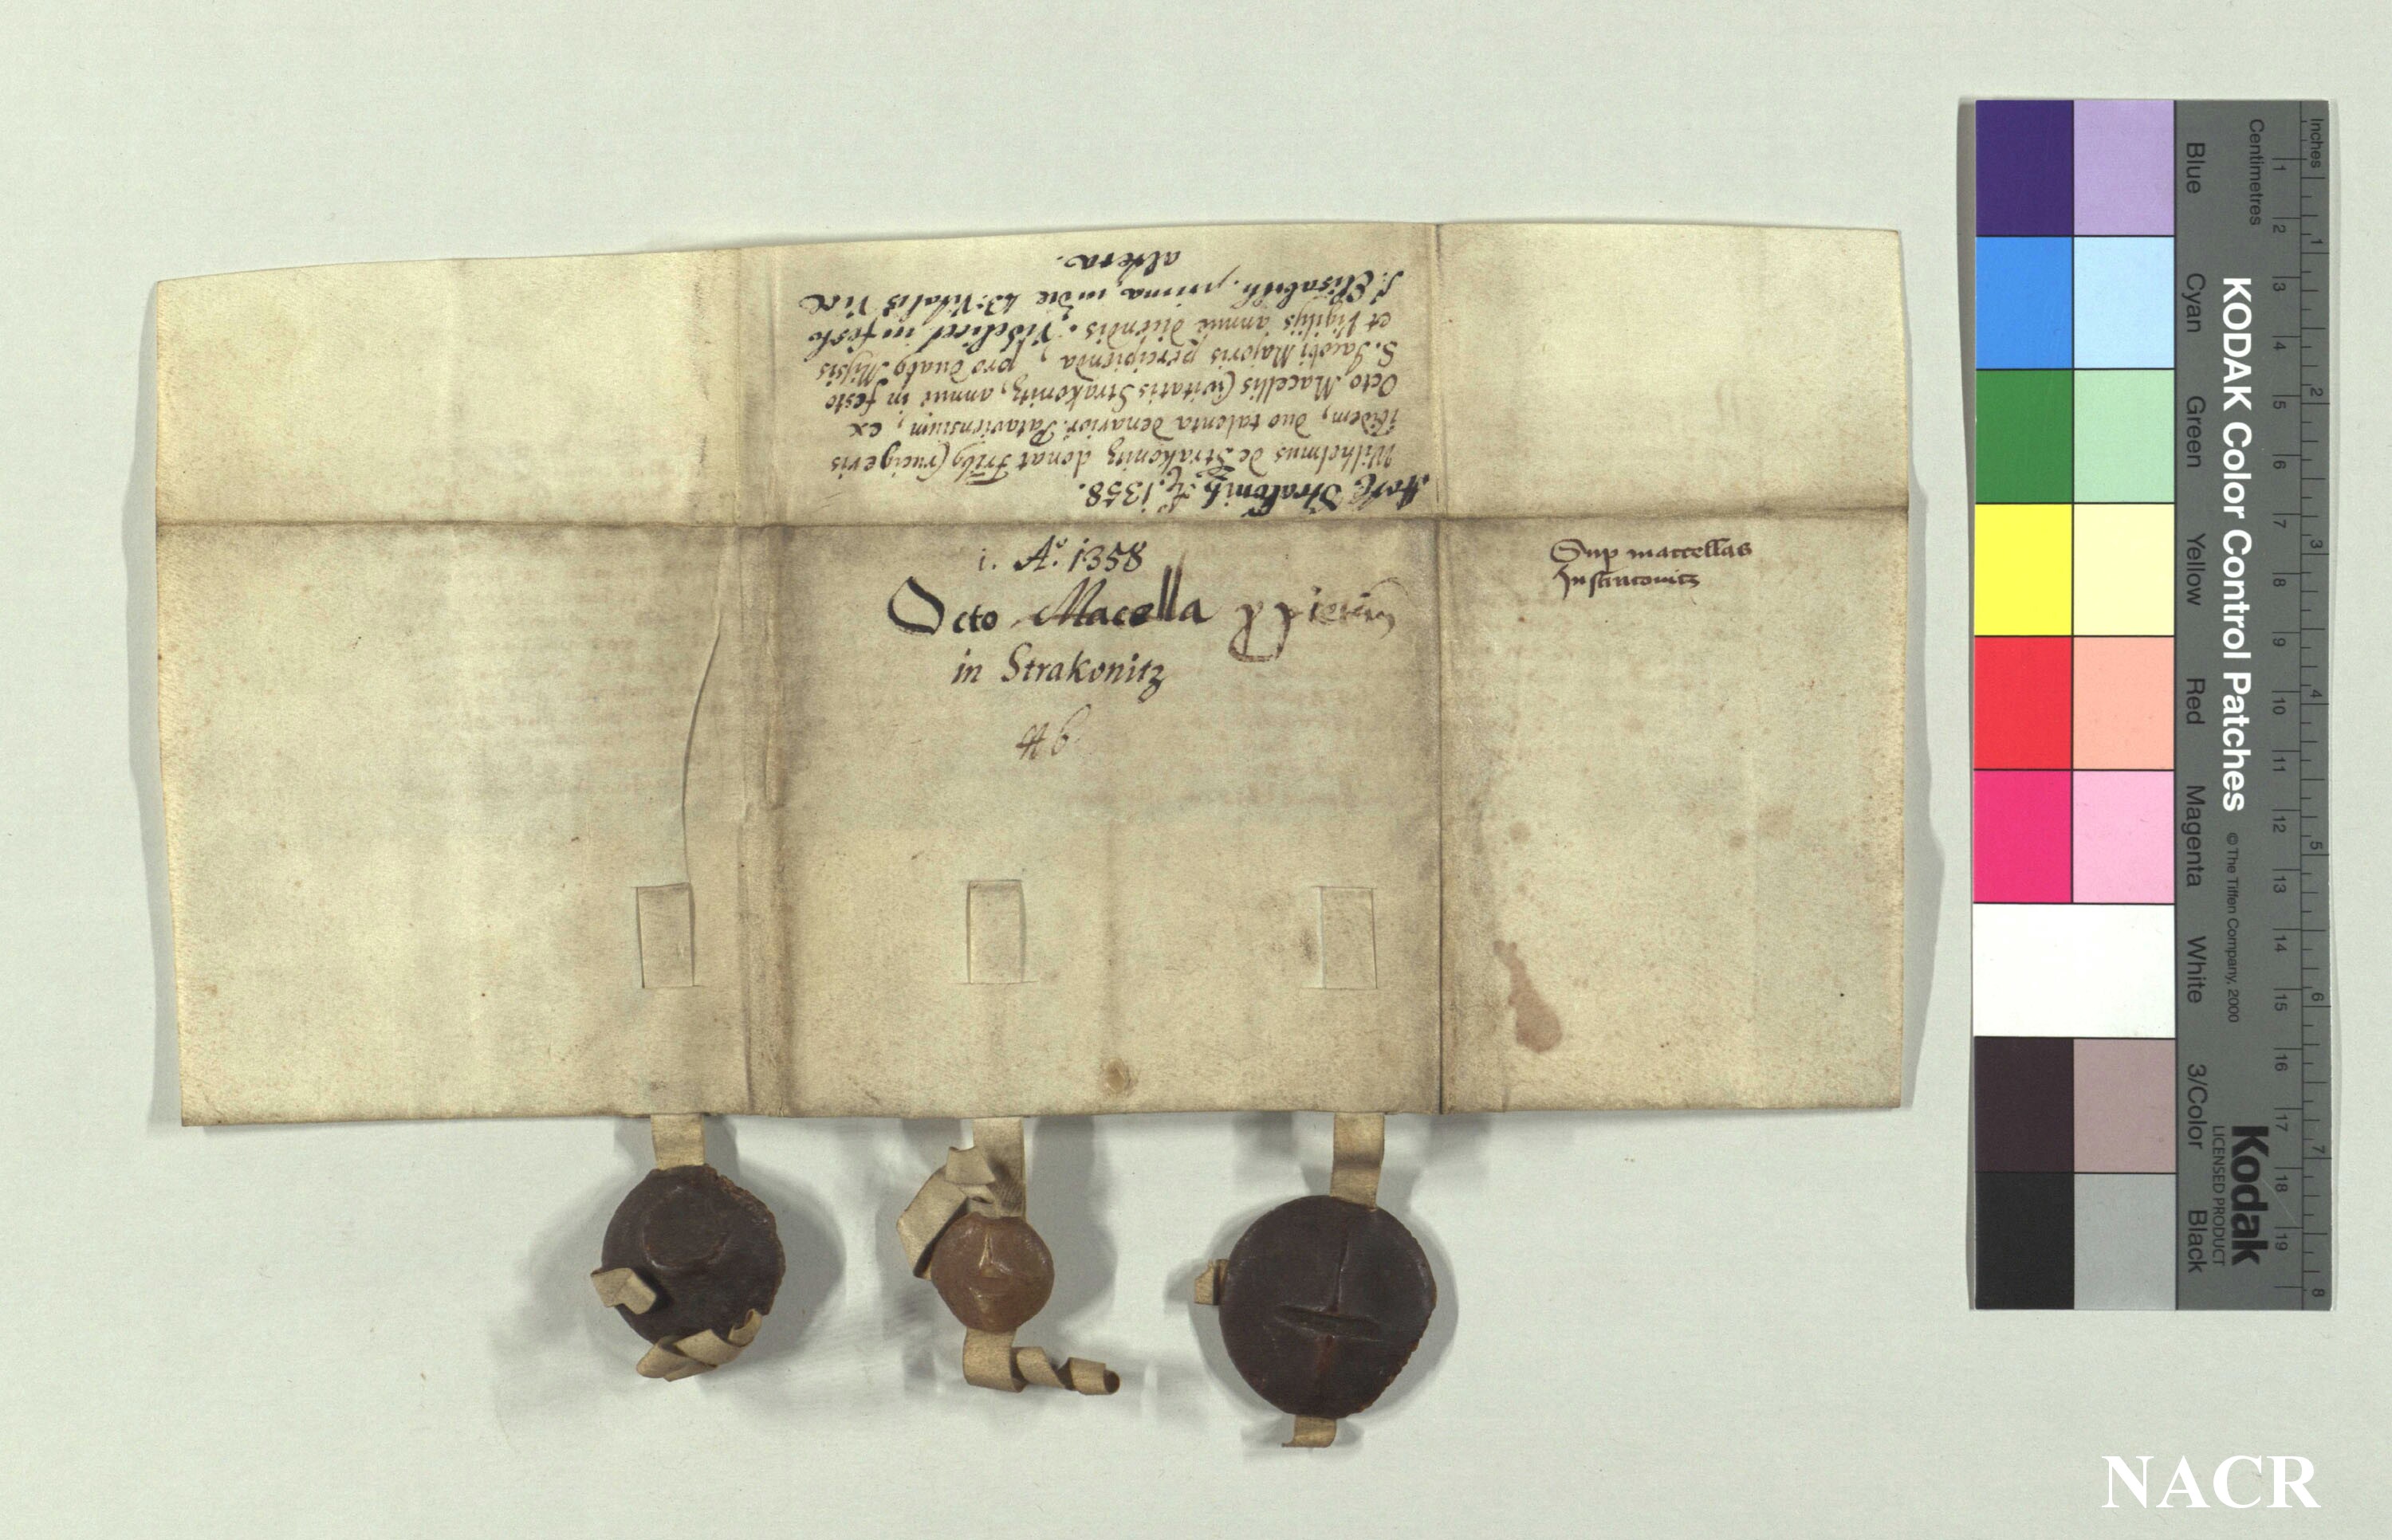 Strakonitz A. 1358.
Wilhelmus de Strakonitz donat Frib9 Crucigeris
ibidem, duo talenta denarior. Pataviensium, ex
Octo Macellis Civitatis Strakonitz, annue in festo
S. Jacobi Majoris percipienda, pro duab9 Missis
et Vigilijs annue dicendis. Videlicet in festo
S. Elisabeth. prima, in die S: Vitalis Vice
altera.
i. A.º 1358
Octo Macella
in Strakonitz
Sup maccellas
In straconitz
Inches
Centimetres
Blue
Cyan
Green
Yellow
Red
Magenta
White
3/Color
Black
KODAK Color Control Patches
© The Tiffen Company, 2000
Kodak
LICENSED PRODUCT
1 2 3 4 5 6 7 8 9 10 11 12 13 14 15 16 17 18 19
1 2 3 4 5 6 7 8
NACR